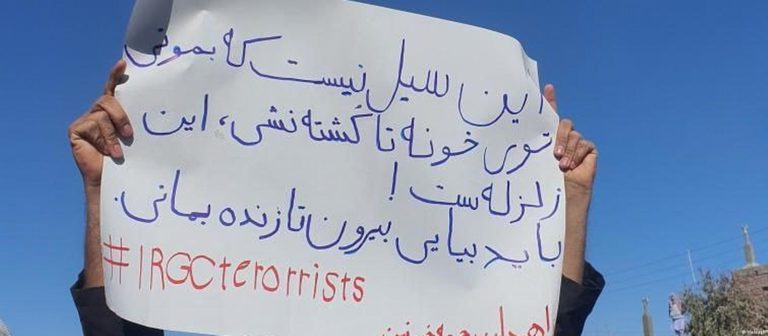 این سیل نیست که بمونی
توی خونه تا کُشته نشی، این
زلزله ست !
باید بیایی بیرون تا زنده بمانی.
#IRGCterorrists